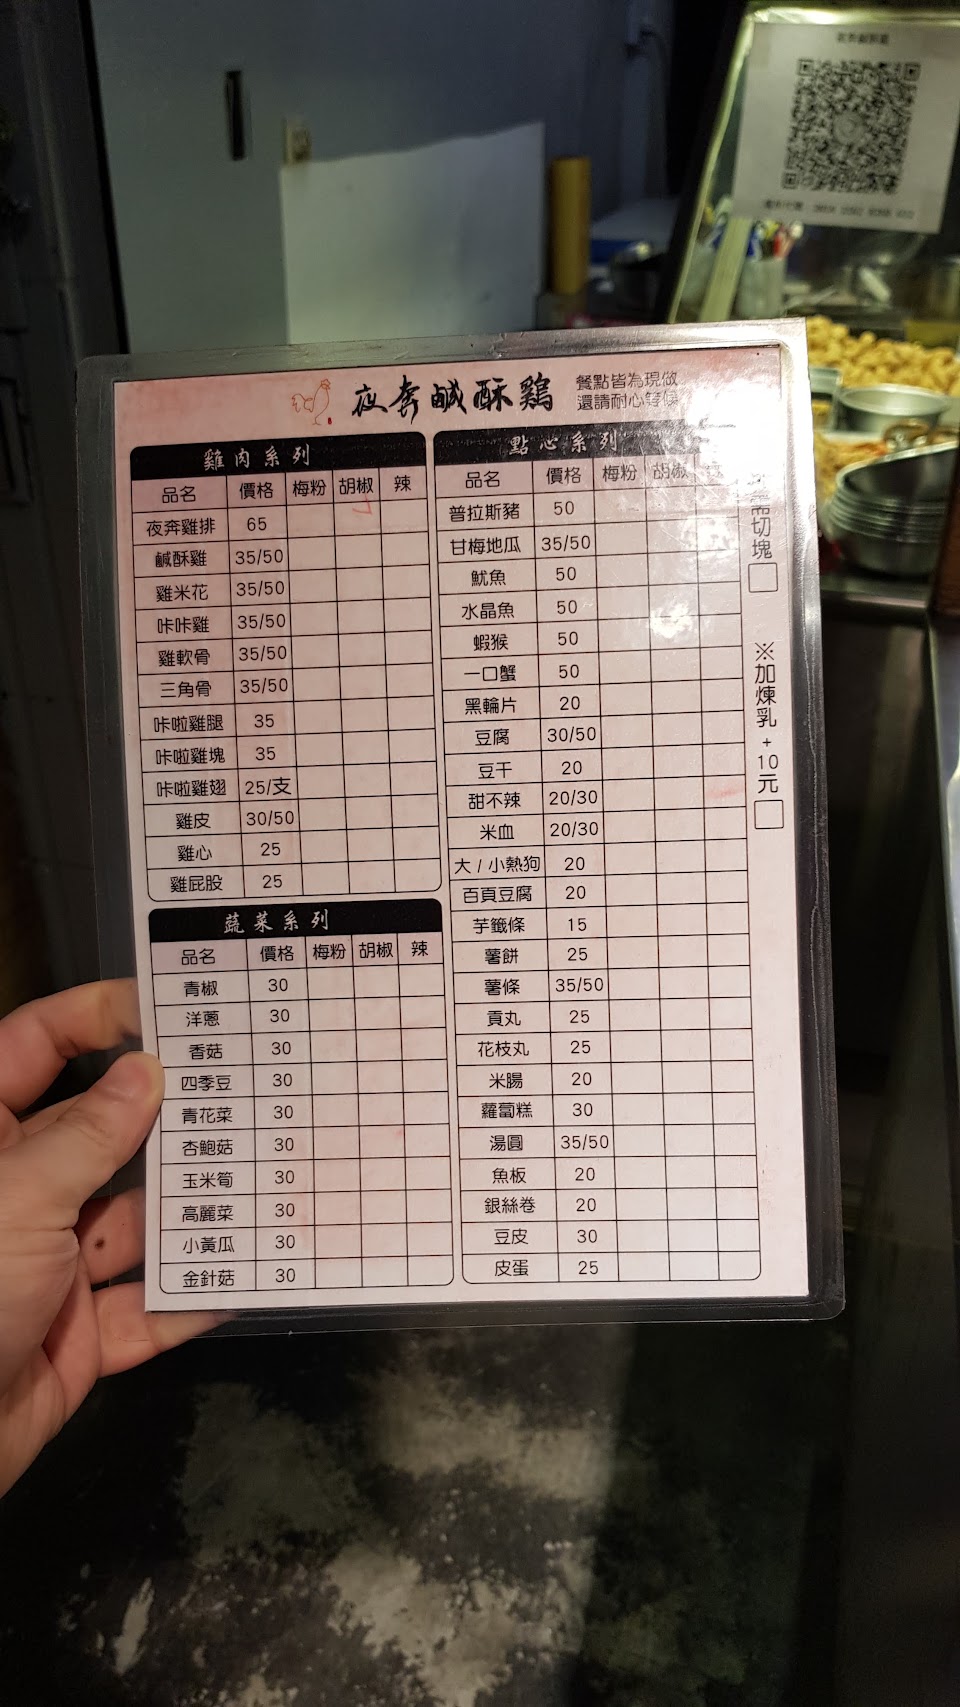 夜奔鹹酥鷄
餐點皆為現做
還請耐心等候
雞肉系列
品名 價格 梅粉 胡椒 辣
夜奔雞排 65
鹹酥雞 35/50
雞米花 35/50
咔咔雞 35/50
雞軟骨 35/50
三角骨 35/50
咔啦雞腿 35
咔啦雞塊 35
咔啦雞翅 25/支
雞皮 30/50
雞心 25
雞屁股 25
蔬菜系列
品名 價格 梅粉 胡椒 辣
青椒 30
洋蔥 30
香菇 30
四季豆 30
青花菜 30
杏鮑菇 30
玉米筍 30
高麗菜 30
小黃瓜 30
金針菇 30
點心系列
品名 價格 梅粉 胡椒
普拉斯豬 50
甘梅地瓜 35/50
魷魚 50
水晶魚 50
蝦猴 50
一口蟹 50
黑輪片 20
豆腐 30/50
豆干 20
甜不辣 20/30
米血 20/30
大/小熱狗 20
百頁豆腐 20
芋籤條 15
薯餅 25
薯條 35/50
貢丸 25
花枝丸 25
米腸 20
蘿蔔糕 30
湯圓 35/50
魚板 20
銀絲卷 20
豆皮 30
皮蛋 25
需切塊
※加煉乳+10元